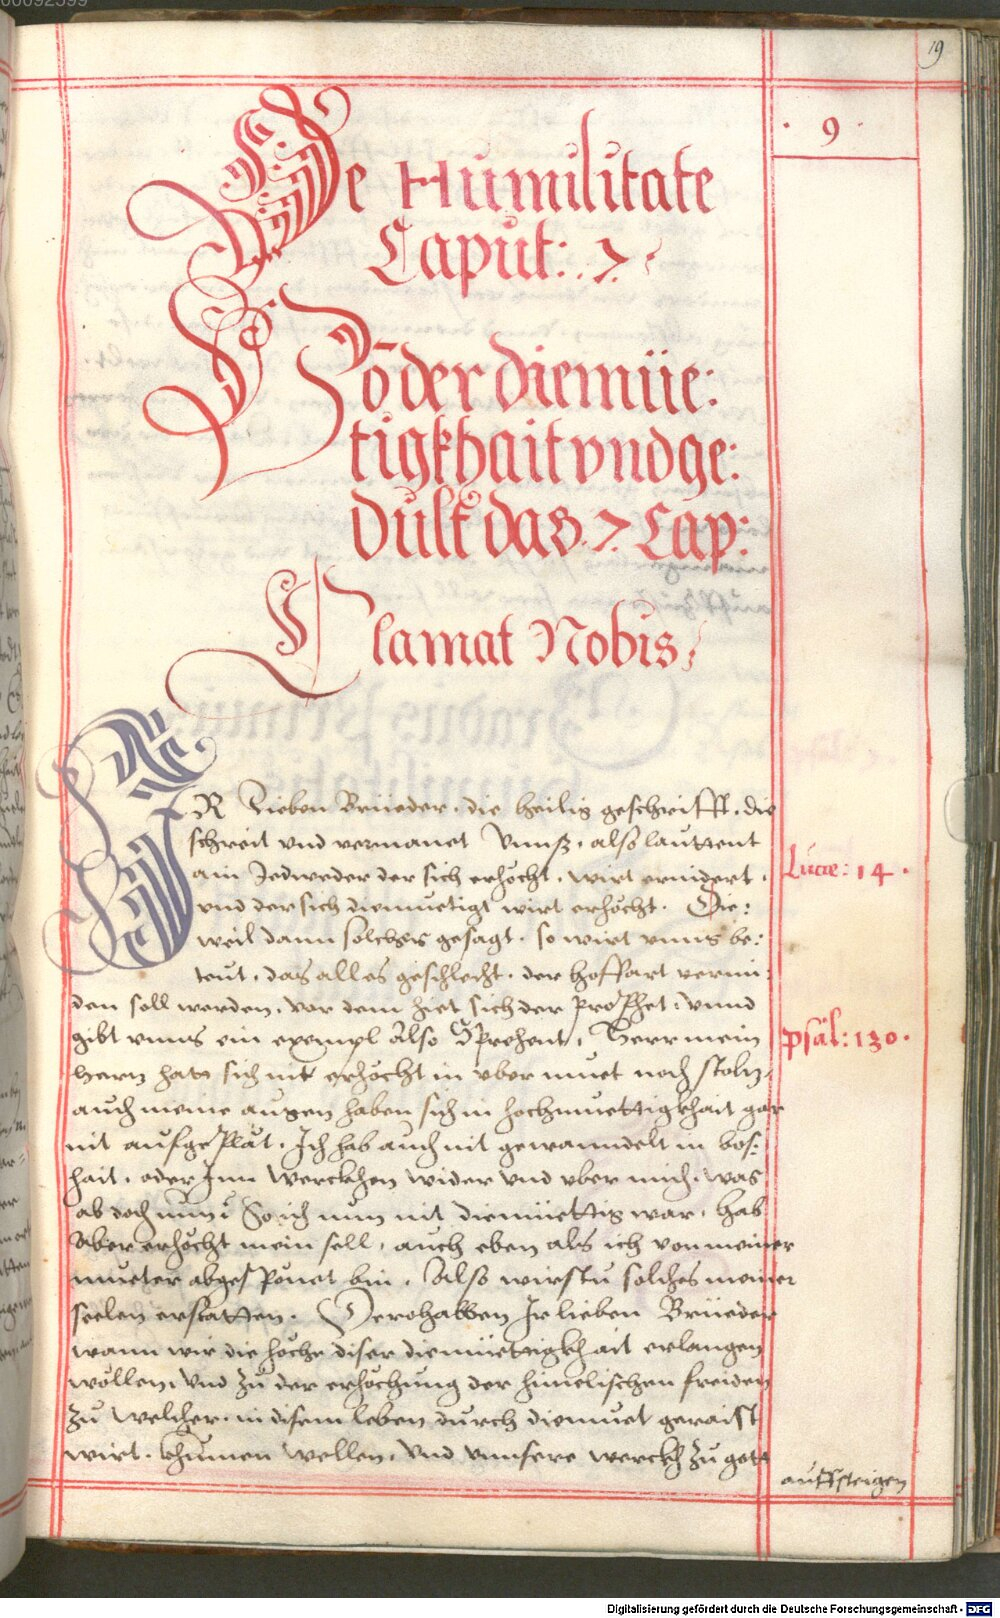 19
9
De Humilitate
Caput: 7.
Võ der diemüe:
tigkhait vnd ge:
dult das .7. Cap:
Clamat Nobis
IR Lieben Brüeder. die heilig geschrifft. die
schreit vnd vermanet Vnnß. also lauttent
ain Jedweder der sich erhöcht. wirt ernidert.
Lucæ: 14.
vnd der sich diemuetigt wirt erhöcht. Die:
weil dann solches gesagt. so wirt vnns be:
teut. das alles geschlecht. der hoffart vermi
den soll werden. vor dem hiet sich der prophet. vnnd
gibt vnns ein exempl Also Sprehent. Herr mein
psal: 130.
hertz hatt sich nit erhöcht in vber muet noch stoltz
auch meine augen haben sich in hochmuettigkhait gar
nit aufgeplät. Ich hab auch nit gewanndelt in bos:
hait. oder Inn Werckhen wider vnd vber mich. was
ab doch nun So ich nun nit diemüettig war. hab
Aber erhöcht mein sell. auch eben als ich von meiner
mueter abgespönet bin. Also wirstu solches meiner
seelen erstatten. Derohalben Ir lieben Brüeder
wann wir die höche diser diemüettigkhait erlangen
wöllen. vnd zu der erhöchung der himelischen freiden
zu welcher. in disem leben durch diemuet geraist
wirt. khumen wellen. vnd vnnsere werckh zu gott
auffsteigen
Digitalisierung gefördert durch die Deutsche Forschungsgemeinschaft - DFG